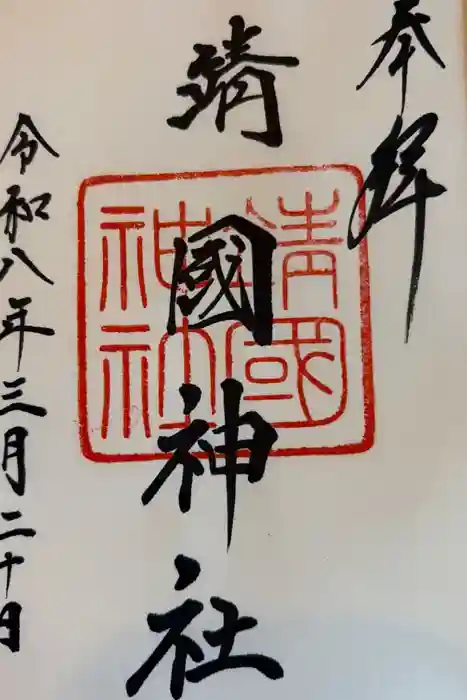 奉拝
靖國神社
靖國
神社
令和八年三月二十日